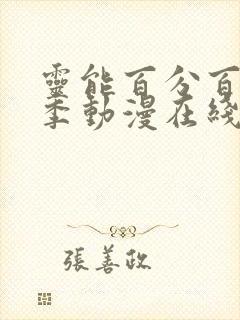 靈能百分百
季動漫在綫
張善政